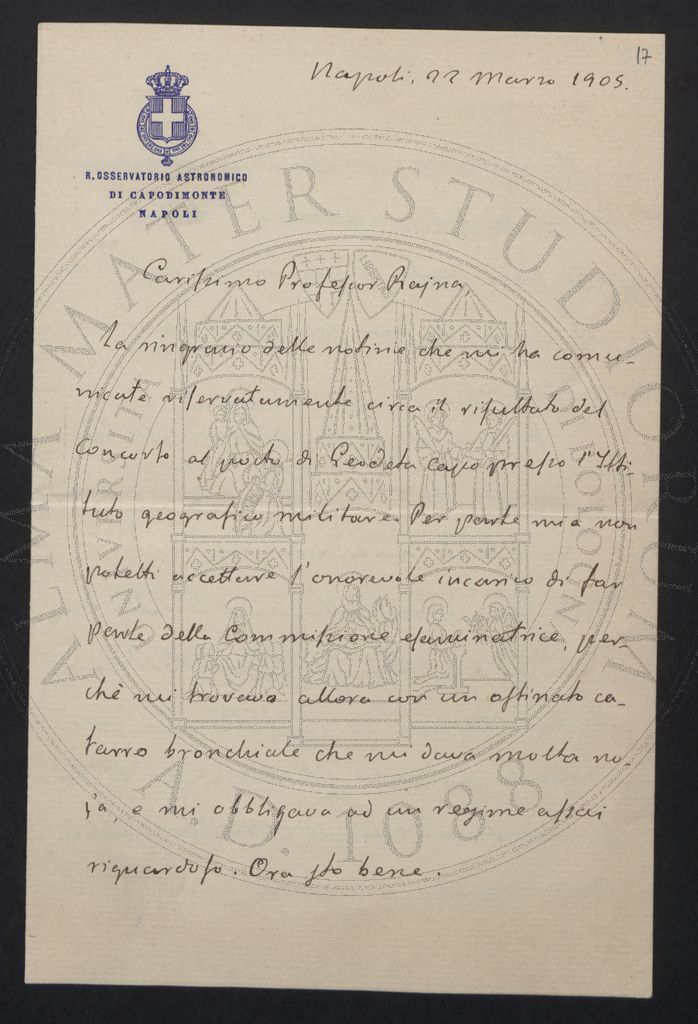 17
Napoli, 22 Marzo 1905.
R. OSSERVATORIO ASTRONOMICO
DI CAPODIMONTE
NAPOLI
Carissimo Professor Rajna,
La ringrazio delle notizie che mi ha comu-
nicate riservatamente circa il risultato del
concorso al posto di Geodeta capo presso l'Isti-
tuto geografico militare. Per parte mia non
potetti accettare l'onorevole incarico di far
parte della Commissione esaminatrice, per-
chè mi trovavo allora con un ostinato ca-
tarro bronchiale che mi dava molta no-
ja, e mi obbligava ad un regime assai
riguardoso. Ora sto bene.
ALMA MATER STUDIORUM
A.D. 1088